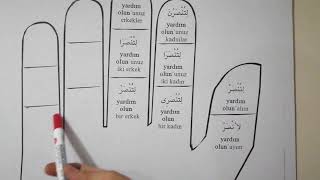 yardım
olun'unuz
erkekler
لِتُنْصَرَا
yardım
olun'unuz
iki erkek
لِتُنْصَرْ
yardım
olun
bir erkek
لِتُنْصَرْنَ
yardım
olun'unuz
kadınlar
لِتُنْصَرَا
yardım
olun'unuz
iki kadın
لِتُنْصَرِى
yardım
olun
bir kadın
yardım